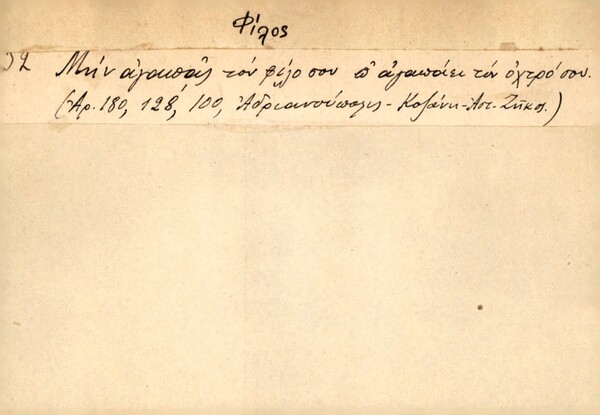 Φίλος
52 Μήν ἀγαπᾶς τόν φίλο σου π' ἀγαπάει τόν ὀχτρό σου.
(Ἀρ. 180, 128, 100, Ἀδριανούπολις - Κοζάνη - Ἀστ. Ζῆκος.)